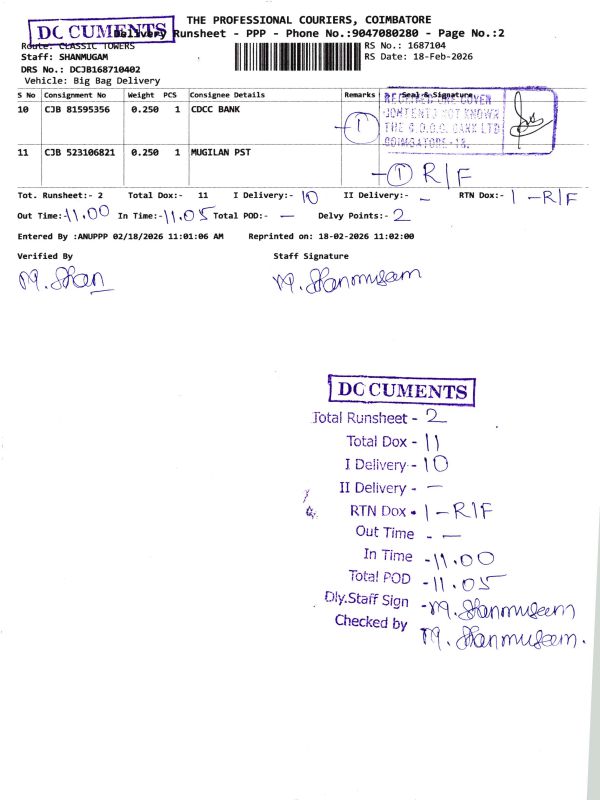 DOCUMENTS
THE PROFESSIONAL COURIERS, COIMBATORE
Delivery Runsheet - PPP - Phone No.:9047080280 - Page No.:2
Route: CLASSIC TOWERS
RS No.: 1687104
Staff: SHANMUGAM
RS Date: 18-Feb-2026
DRS No.: DCJB168710402
Vehicle: Big Bag Delivery
S No Consignment No Weight PCS Consignee Details Remarks Seal & Signature
10 CJB 81595356 0.250 1 CDCC BANK
RECEIVED ONE COVER
CONTENTS NOT KNOWN
THE C.D.C.C. BANK LTD
COIMBATORE-18.
- 1
11 CJB 523106821 0.250 1 MUGILAN PST
- 1 R/F
Tot. Runsheet:- 2 Total Dox:- 11 I Delivery:- 10 II Delivery:- - RTN Dox:- 1 - R/F
Out Time:- 11.00 In Time:- 11.05 Total POD:- - Delvy Points:- 2
Entered By :ANUPPP 02/18/2026 11:01:06 AM Reprinted on: 18-02-2026 11:02:00
Verified By Staff Signature
M. Shan M. Shanmugam
DOCUMENTS
Total Runsheet - 2
Total Dox - 11
I Delivery - 10
II Delivery - -
RTN Dox - 1 - R/F
Out Time - -
In Time - 11.00
Total POD - 11.05
Dly.Staff Sign - M. Shanmugam
Checked by M. Shanmugam.